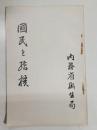 内務省衛生局
國民と結核